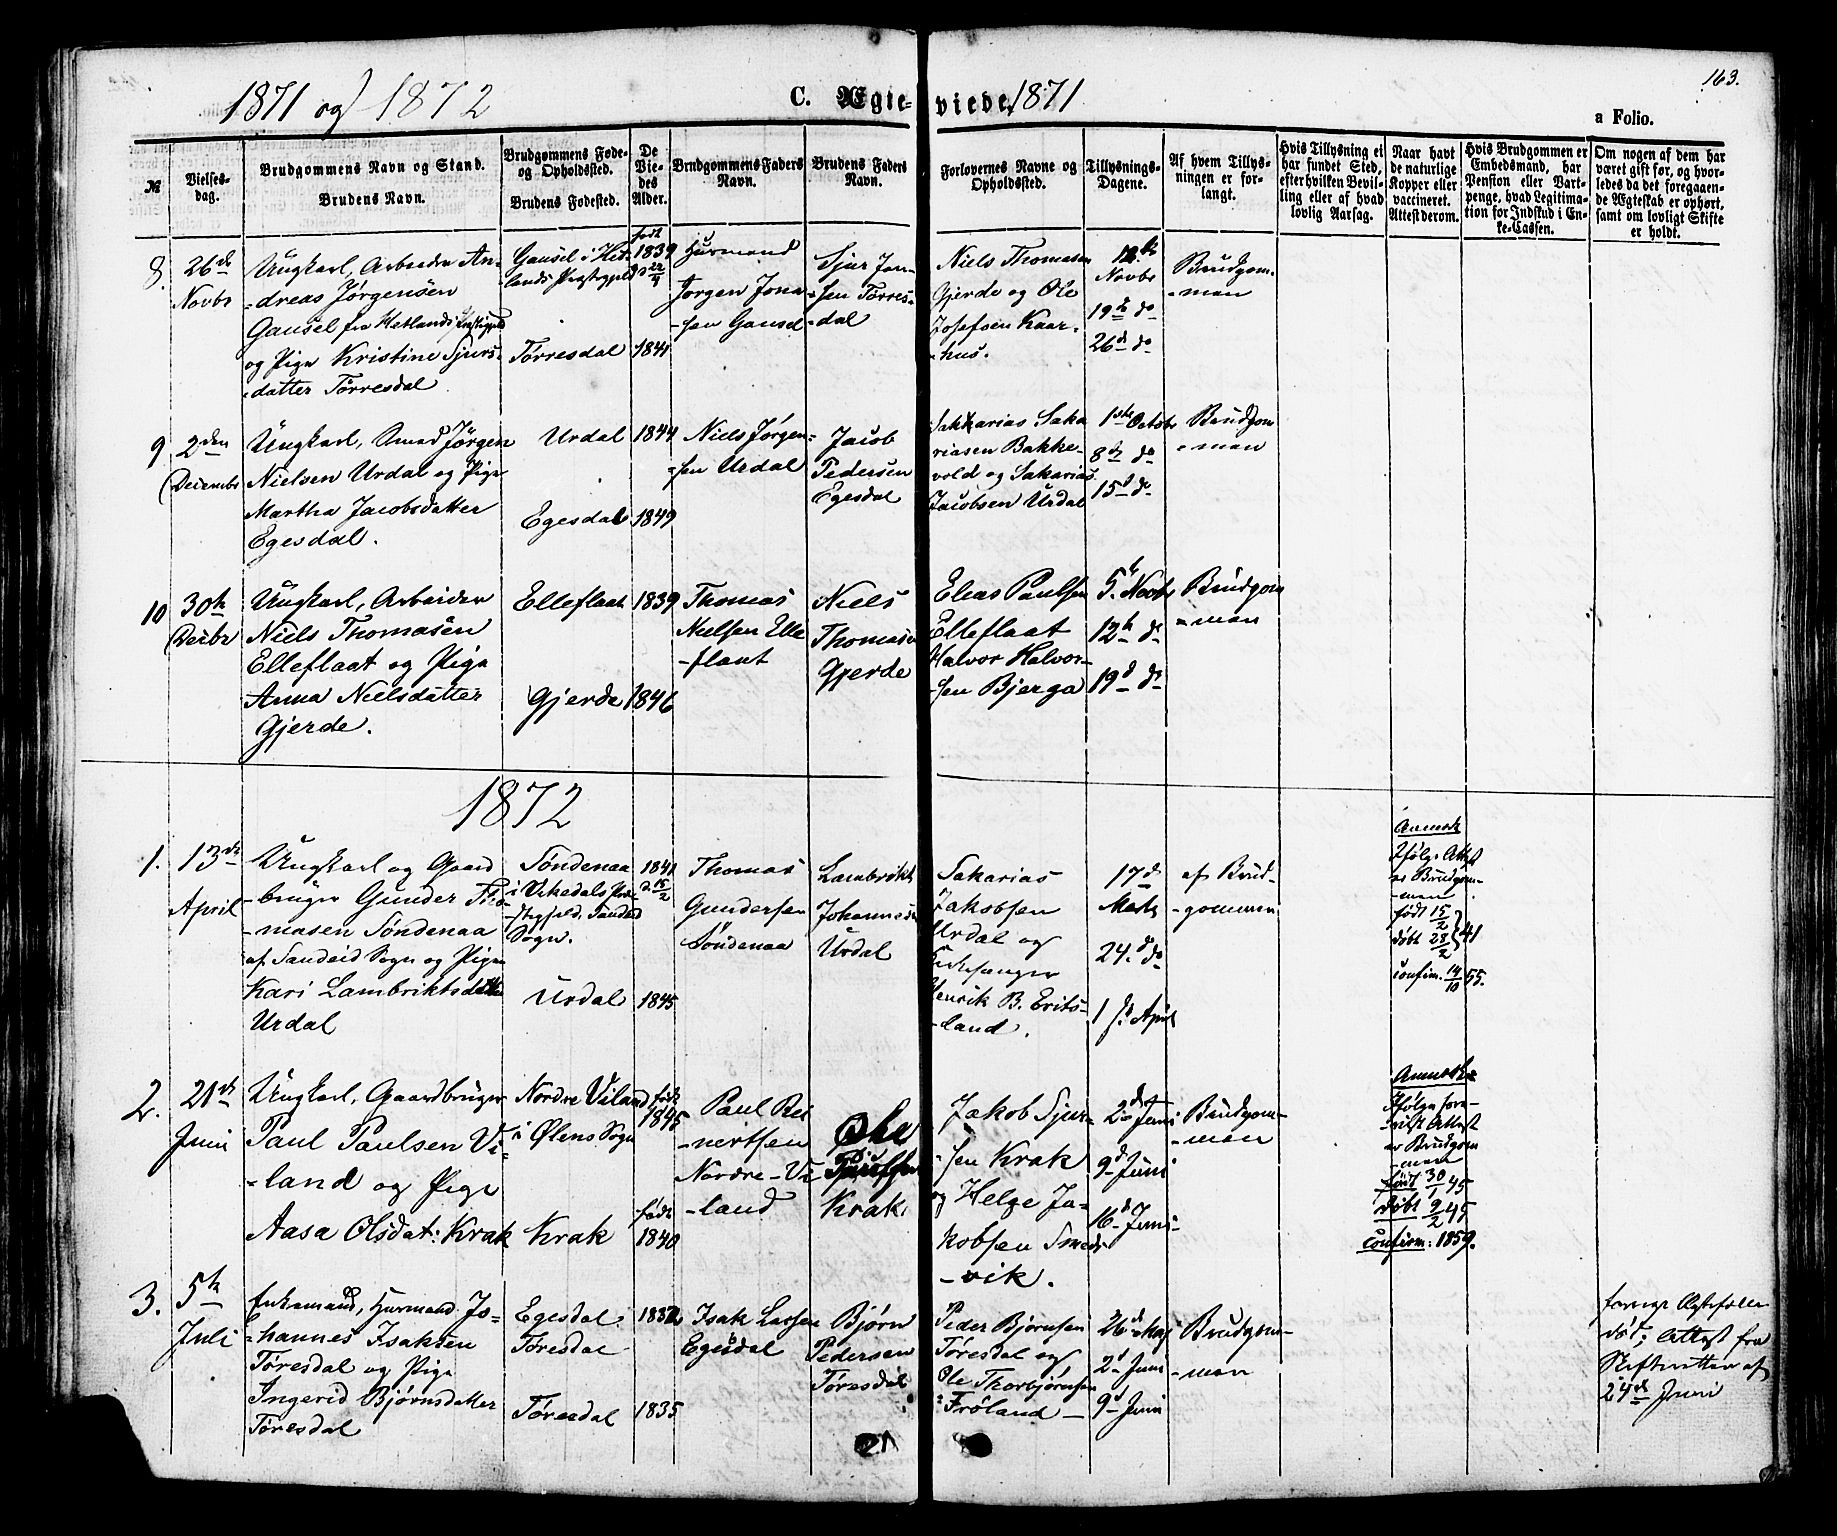 1871 og 1872
C. Ægte-
viede 1871
163.
a Folio.
№
Vielses-
dag.
Brudgommens Navn og Stand.
Brudens Navn.
Brudgommens Føde-
og Opholdssted.
Brudens Fødested.
De
Vie-
des
Alder.
Brudgommens Faders
Navn.
Brudens Faders
Navn.
Forlovernes Navne og
Opholdssted.
Tillysnings-
Dagene.
Af hvem Tillys-
ningen er for-
langt.
Hvis Tillysning ei
har fundet Sted,
efter hvilken Bevil-
ling eller af hvad
lovlig Aarsag.
Naar havt
de naturlige
Kopper eller
vaccineret.
Attest derom.
Hvis Brudgommen er
Embedsmand, har
Pension eller Vart-
penge, hvad Legitima-
tion for Indskud i En-
ke-Cassen.
Om nogen af dem har
været gift før, og hvor-
ledes da det foregaaen-
de Ægteskab er ophørt,
samt om lovligt Skifte
er holdt.
8.
26de
Novbr
Ungkarl, Arbeider An-
-dreas Jørgensen
Gausel fra Hetlands Præstegjeld
og Pige Kristine Sjurs-
datter Tørresdal
Gausel i Het-
lands Præstegjeld
Tørresdal
født
1839
22/9
1841
Husmand
Jørgen Jona
-sen Gausel
Sjur Jon-
-sen Tørres-
-dal
Niels Thomasen
Gjerde og Ole
Josefsen Kaar-
-hus.
12te
Novbr
19de do
26de do
Brudgom-
-men
9
2den
Decembr
Ungkarl, Smed Jørgen
Nielsen Urdal og Pige
Martha Jacobsdatter
Egesdal.
Urdal
Egesdal
1844
1849
Niels Jørgen-
-sen Urdal
Jacob
Pedersen
Egesdal
Sakkarias Saka
riasen Bakke-
vold og Sakarias
Jacobsen Urdal
1ste Octobr
8de do
15de do
Brudgom
-men
10
30te
Decbr
Ungkarl, Arbeider
Niels Thomasen
Elleflaat og Pige
Anna Nielsdatter
Gjerde.
Elleflaat
Gjerde
1839
1846
Thomas
Nielsen Elle
-flaat
Niels
Thomasen
Gjerde
Elias Paulsen
Elleflaat
Halvor Halvor-
-sen Bjerga
5te Novbr
12te do
19de do
Brudgom
-men
1872
1.
13de
April
Ungkarl og Gaard
-bruger Gunder Tho-
-masen Søndenaa
af Sandeid Sogn og Pige
Kari Lambriktsdatter
Urdal
Søndenaa
i Vikedals Præ-
-stegjeld, Sandeid
Sogn.
Urdal
1841
d. 15/2
1845
Thomas
Gundersen
Søndenaa
Lambrikt
Johannesen
Urdal
Sakarias
Jakobsen
Urdal og
Kirkesanger
Henrik B. Erits-
-land.
17de
Marts
24. do
1ste April
af Brud-
-gommen
Anmerk
Ifølge Attest
er Brudgom-
-men
født 15/2
døbt 28/2 } 41
confirm. 14/10 55.
2.
21de
Juni
Ungkarl, Gaardbruger
Paul Paulsen Vi-
-land og Pige
Aasa Olsdat: Krak
Nordre Viland
i Ølens Sogn
Krak
født
1845
født
1840
Paul Rei
-nertsen
Nordre-Vi
-land
Ole
Krak
Jakob Sjur-
-sen Krak
og Helge Ja-
kobsen Smeds
-vik.
2den Juni
9de Juni
16de Juni
Brudgom-
-men
Ifølge fore-
-vist Attest
er Brudgom
-men
født 30/1 45
døbt 9/2 45
confirm: 1859.
3.
5te
Juli
Enkemand, Husmand Jo-
-hannes Isaksen
Tøresdal og Pige
Ingerid Bjørnsdatter
Tøresdal
Egesdal
Tøresdal
Tøresdal
1835
Isak Larsen
Egesdal
Bjørn
Pedersen
Tøresdal
Peder Bjørnsen
Tøresdal og
Ole Thorbjørnsen
Frøland
26de Maj
2de Juni
9de Juni
Brudgom-
-men
forrige Ægtefælle
død; Attest fra
Skifteretten af
24de Juni